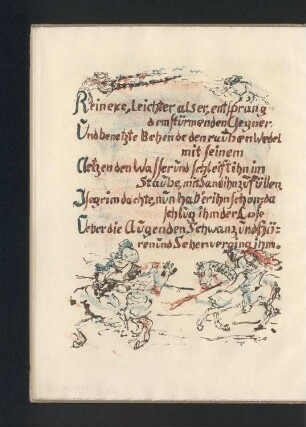 Reineke, leichter als er, entsprang
dem stürmenden Gegner,
Und benetzte Behende den rauhen Wedel
mit seinem
Aetzenden Wasser und schleift ihn im
Staube, mit Sand ihn zu füllen
Isegrim dachte, nun hab er ihn schon, da
schlug ihm der Lose
Ueber die Augen den Schwanz, und Hö-
ren und Sehen verging ihm.